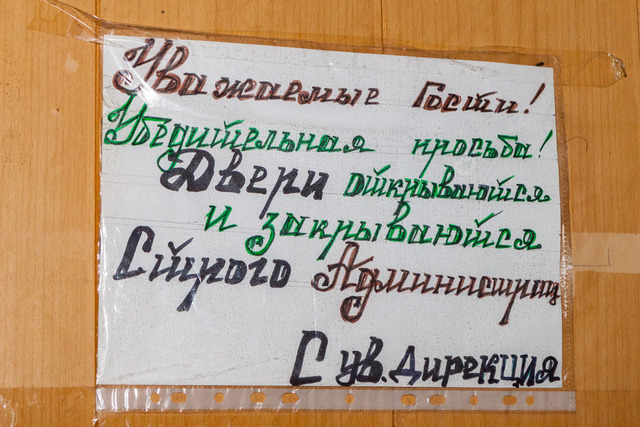 Уважаемые Гости!
Убедительная просьба!
Двери открываются
и закрываются
Строго Администрац
С ув. Дирекция